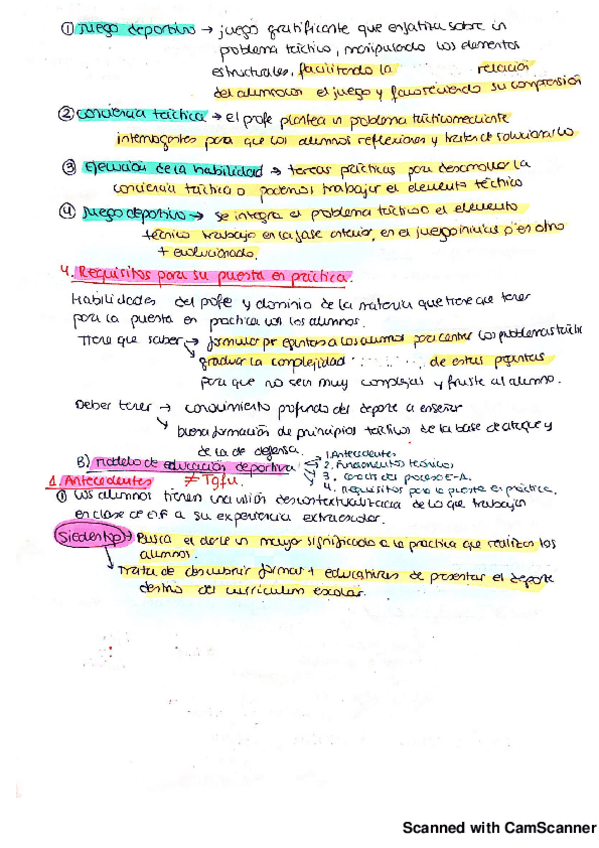 ① Juego deportivo → juego gratificante que enfatiza sobre un
problema táctico, manipulando los elementos
estructurales, facilitando la relación
del alumno con el juego y favoreciendo su comprensión
② conciencia táctica → el profe plantea un problema táctico mediante
interrogantes para que los alumnos reflexionen y traten de solucionarlo
③ Ejecución de la habilidad → tareas prácticas para desarrollar la
conciencia táctica o podemos trabajar el elemento técnico
④ Juego deportivo → se integra el problema táctico o el elemento
técnico trabajado en la fase anterior, en el juego inicial o en otro
+ evolucionado.
4. Requisitos para su puesta en práctica.
Habilidades del profe y dominio de la materia que tiene que tener
para la puesta en práctica con los alumnos.
Tiene que saber → formular preguntas a los alumnos para centrar los problemas táctic
↘ graduar la complejidad de estas preguntas
para que no sean muy complejas y fruste al alumno.
Deber tener → conocimiento profundo del deporte a enseñar
↘ buena formación de principios tácticos de la base de ataque y
de la de defensa.
B) Modelo de educación deportiva
1. Antecedentes
2. Fundamentos teóricos
3. del proceso E-A.
4. Requisitos para la puesta en práctica.
1. Antecedentes ≠ Tgfu.
① Los alumnos tienen una visión descontextualizada de lo que trabajan
en clase de E.F a su experiencia extraescolar.
Siedentop → Busca el darle un mayor significado a la práctica que realizan los
alumnos.
↘ Trata de descubrir formas + educativas de presentar el deporte
dentro del curriculum escolar.
Scanned with CamScanner